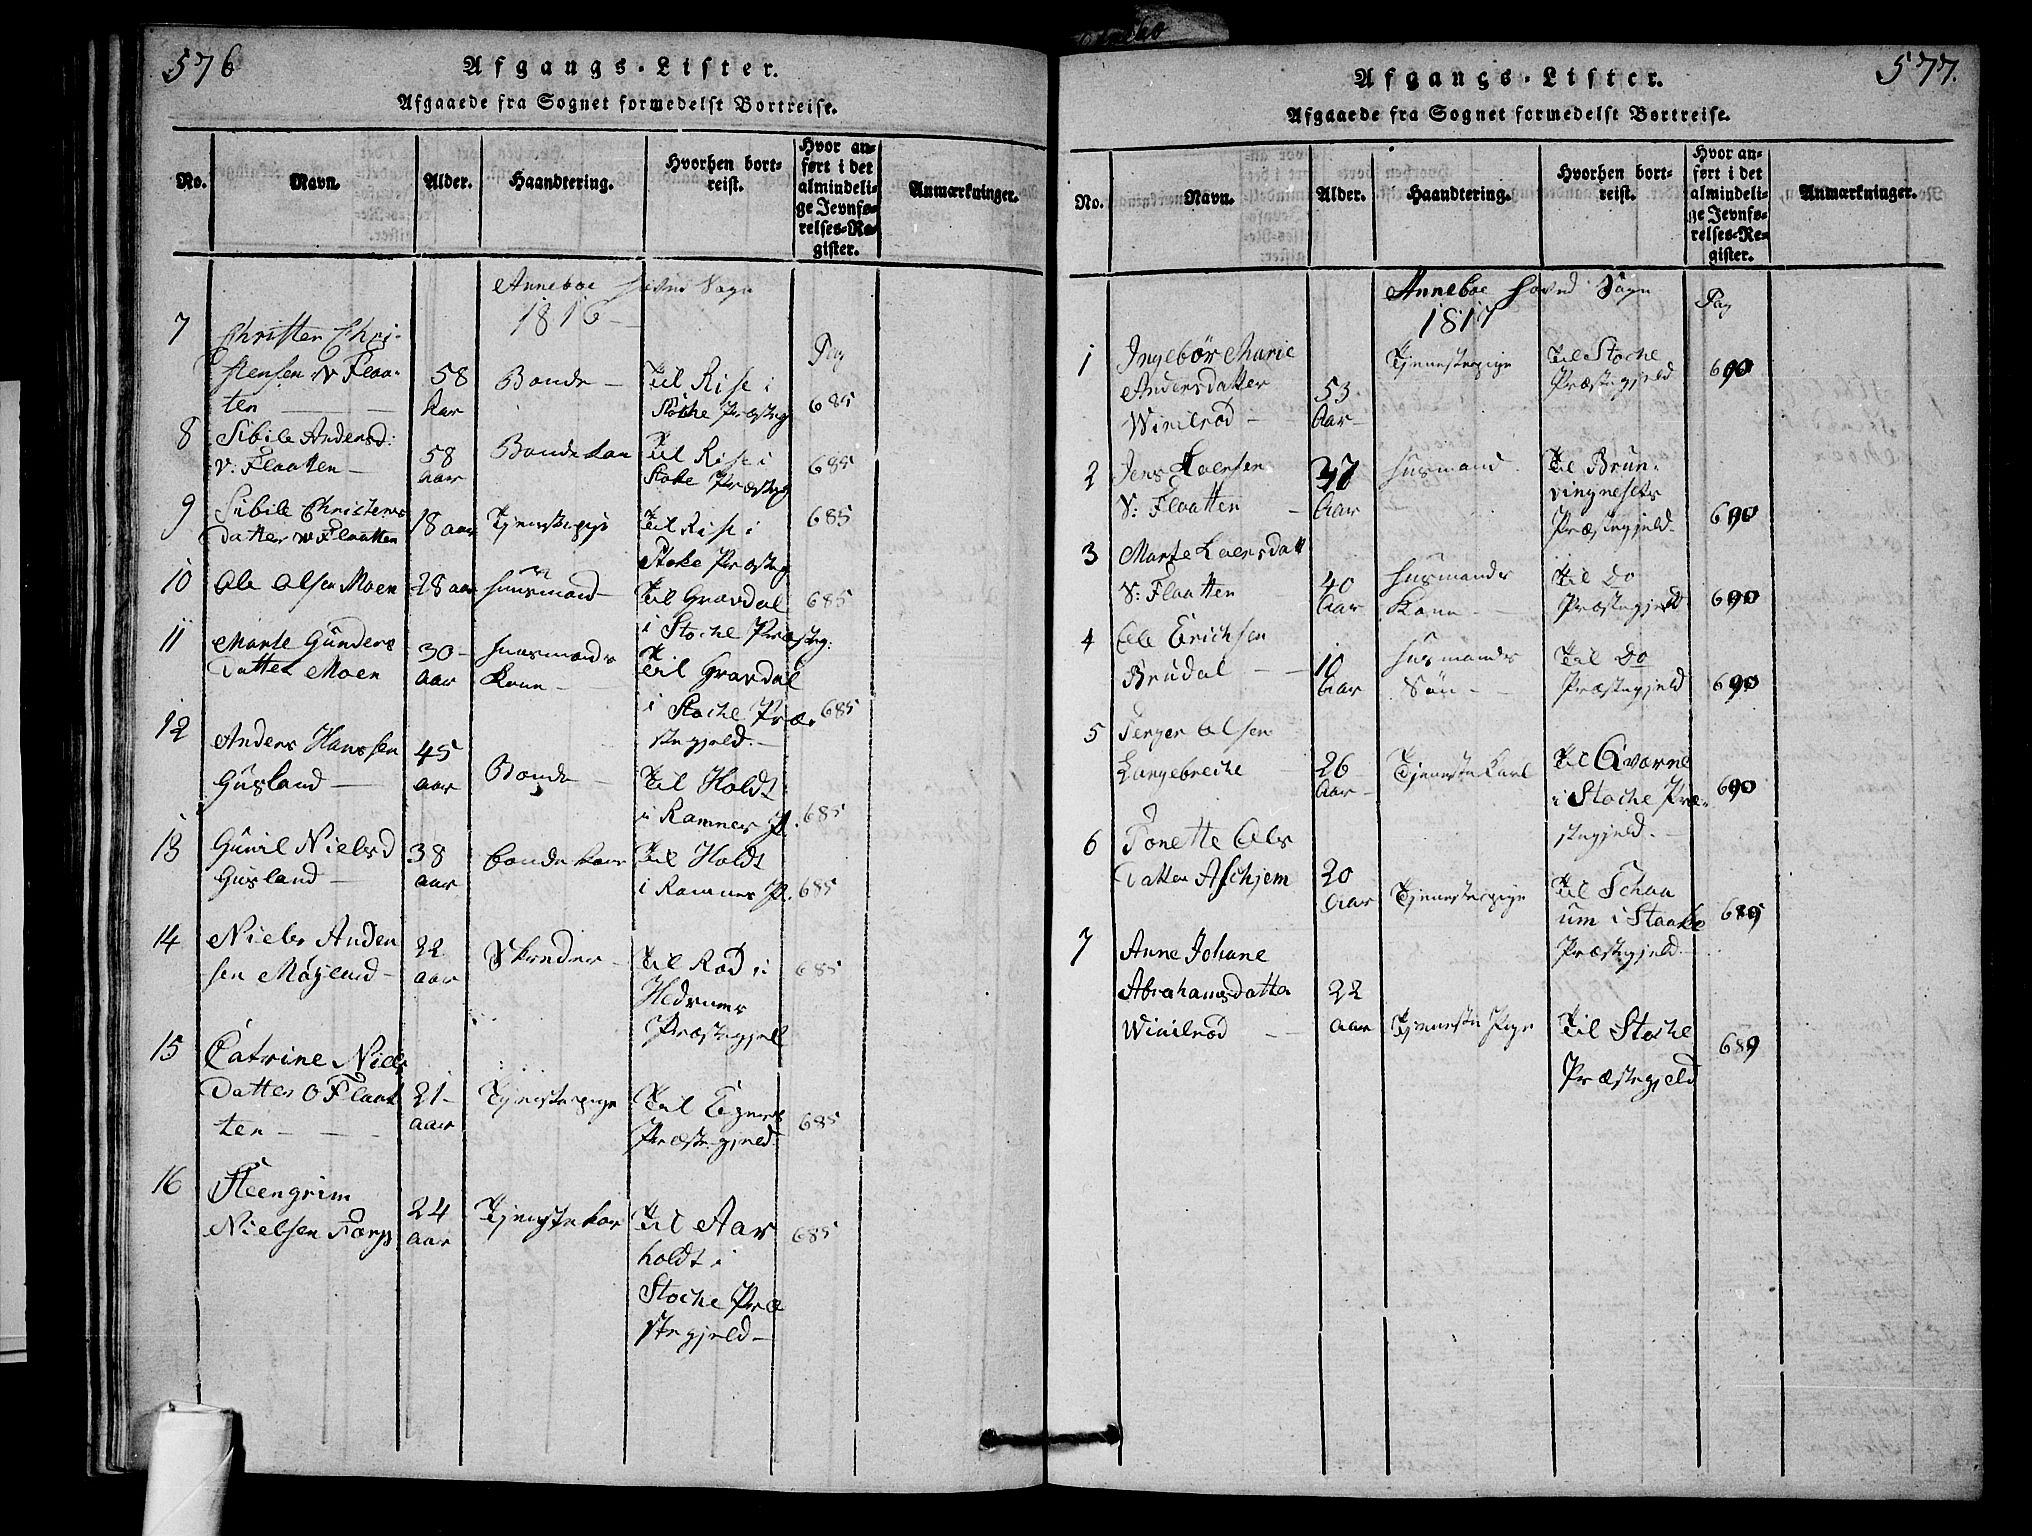 576
Afgangs-Lister.
Afgaaede fra Sognet formedelst Bortreise.
No.
Navn.
Alder.
Haandtering.
Hvorhen bort-
reist.
Hvor an-
ført i det
almindeli-
ge Jevnfø-
relses-Re-
gister.
Anmærkninger.
Anneboe Hoved Sogn
1816
Pag
7
Christen Chri-
stensen v Flaa-
ten
58
Aar
Bonde
Til Rise i
Stoche Præsteg
685
8
Sibile Andersd:
v: Flaatten
58
aar
Bondekone
Til Rise i
Stoke Præsteg
685
9
Sibile Christens
Datter v Flaatten
18 aar
Tjenestepige
Til Rise i
Stoke Præsteg
685
10
Ole Olsen Moen
28 aar
Huusmand
Til Gravdal
i Stoche Præsteg:
685
11
Marte Gunders
Datter Moen
30
aar
Huusmands
Kone
Til Gravdal
i Stoche Præ-
stegjeld.
685
12
Anders Hanssen
Gusland
45
aar
Bonde
Til Holdt
i Ramnes P.
685
13
Gunil Nielsd
Gusland
38
aar
Bondekone
Til Holdt
i Ramnes P.
685
14
Niels Anden
sen Møyland
22
aar
Skreder
Til Rød i
Hedrums
Præstegjel
685
15
Catrine Niels
Datter O Flaat
ten
21
aar
Tjenestepige
Til Egners
Præstegjeld.
685
16
Steengrim
Nielsen Forg
24
aar
Tjenestekar
Til Aar
holdt i
Stoche Præ
stegjeld
685
577.
Afgangs-Lister.
Afgaaede fra Sognet formedelst Bortreise.
No.
Navn.
Alder.
Haandtering.
Hvorhen bort-
reist.
Hvor an-
ført i det
almindeli-
ge Jevnfø-
relses-Re-
gister.
Anmærkninger.
Anneboe Hoved Sogn
1817
Pag
1
Ingebör Marie
Andersdatter
Winilrød
53
Aar
Tjenestepige
Til Stoche
Præstegjeld
690
2
Jens Laersen
V: Flaatten
37
Aar
Husmand
Til Brun-
vingnesets
Præstegjeld.
690
3
Marte Laersdatt
V: Flaatten
40
Aar
Husmands
Kone
Til Do
Præstegjeld
690
4
Ole Erichsen
Brudal
10
Aar
Husmands
Søn
Til Do
Præstegjeld
690
5
Terger Olsen
Langebreche
26
Aar
Tjenestekarl
Til Qværne
i Stoche Præ-
stegjeld.
690
6
Tonette Ols
Datter Aschjem
20
Aar
Tjenestepige
Til Schau
um i Staake
Præstegjeld
689
7
Anne Johane
Abrahamsdatter
Winilrød
22
aar
Tjeneste Pige
Til Stoche
Præstegjeld
689